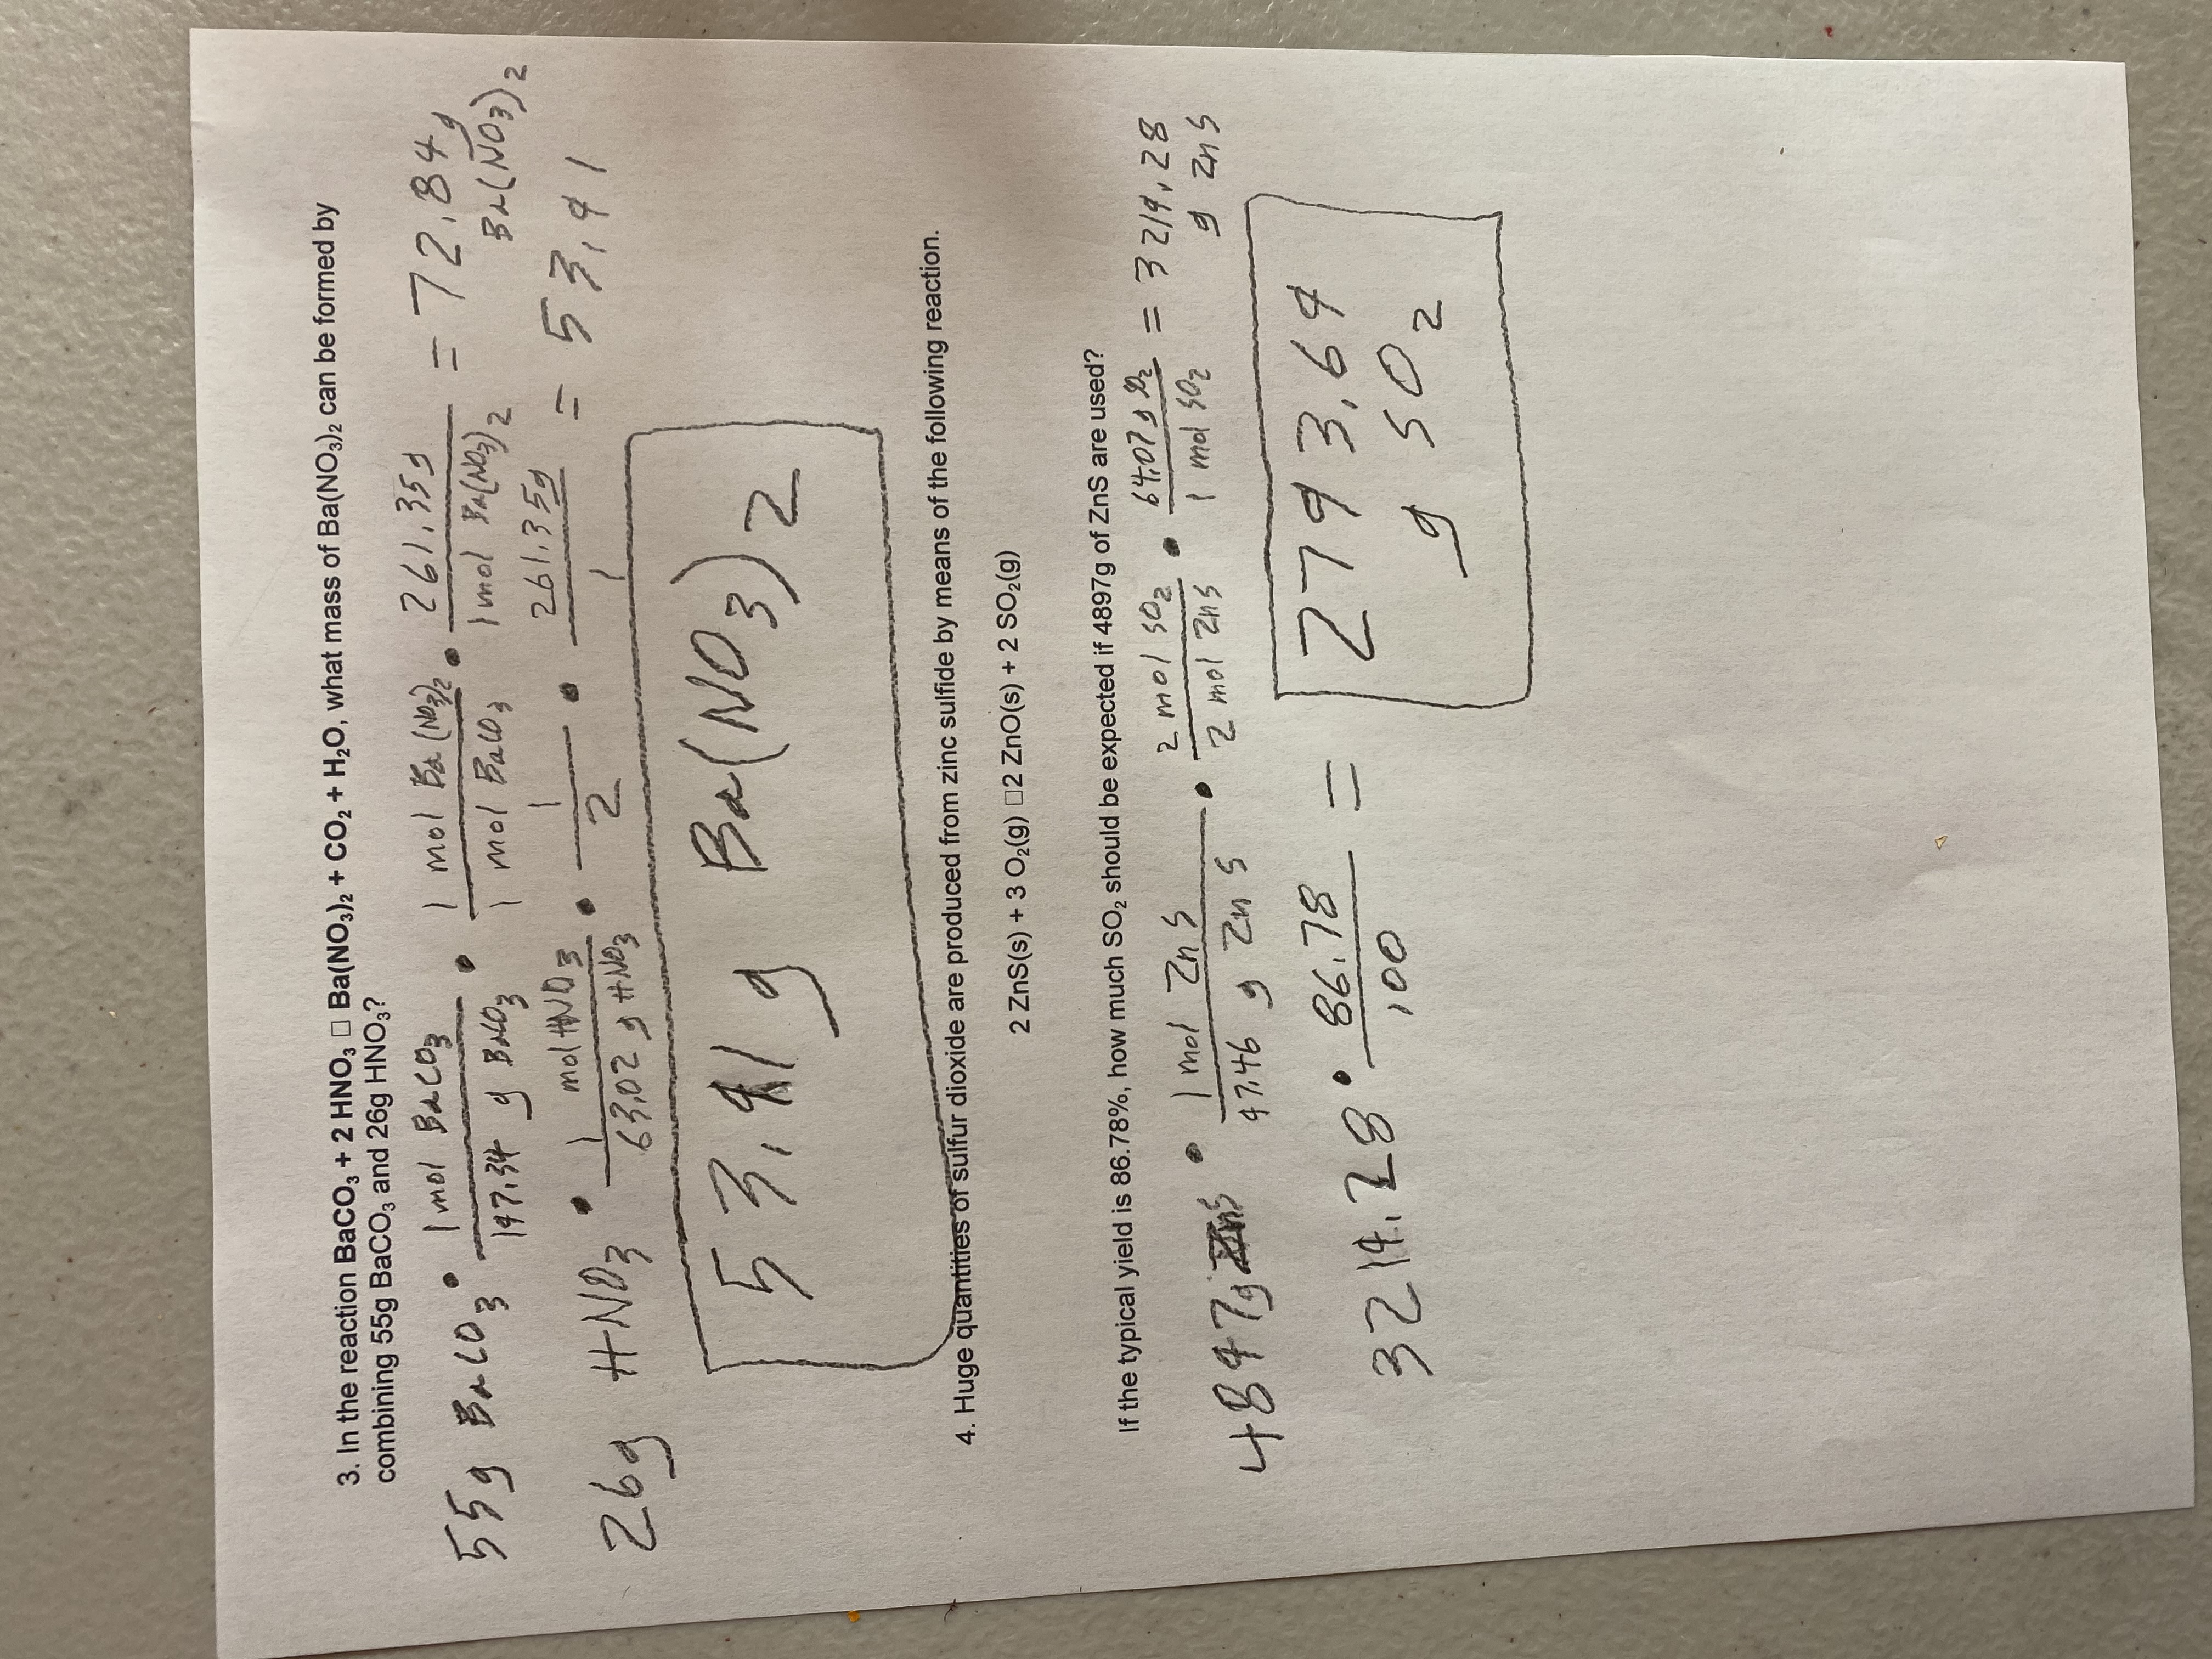 3. In the reaction BaCO₃ + 2 HNO₃ □ Ba(NO₃)₂ + CO₂ + H₂O, what mass of Ba(NO₃)₂ can be formed by
combining 55g BaCO₃ and 26g HNO₃?
55g BaCO₃ • 1 mol BaCO₃ / 197.34 g BaCO₃ • 1 mol Ba(NO₃)₂ / 1 mol BaCO₃ • 261.35g / 1 mol Ba(NO₃)₂ = 72.84g Ba(NO₃)₂
26g HNO₃ • 1 mol HNO₃ / 63.02 g HNO₃ • 1 / 2 • 261.35g / 1 = 53.91
53.91 g Ba(NO₃)₂
4. Huge quantities of sulfur dioxide are produced from zinc sulfide by means of the following reaction.
2 ZnS(s) + 3 O₂(g) □2 ZnO(s) + 2 SO₂(g)
If the typical yield is 86.78%, how much SO₂ should be expected if 4897g of ZnS are used?
4897g ZnS • 1 mol ZnS / 97.46 g ZnS • 2 mol SO₂ / 2 mol ZnS • 64.07 g SO₂ / 1 mol SO₂ = 3219.28 g ZnS
3219.28 • 86.78 / 100 = 2793.69
g SO₂